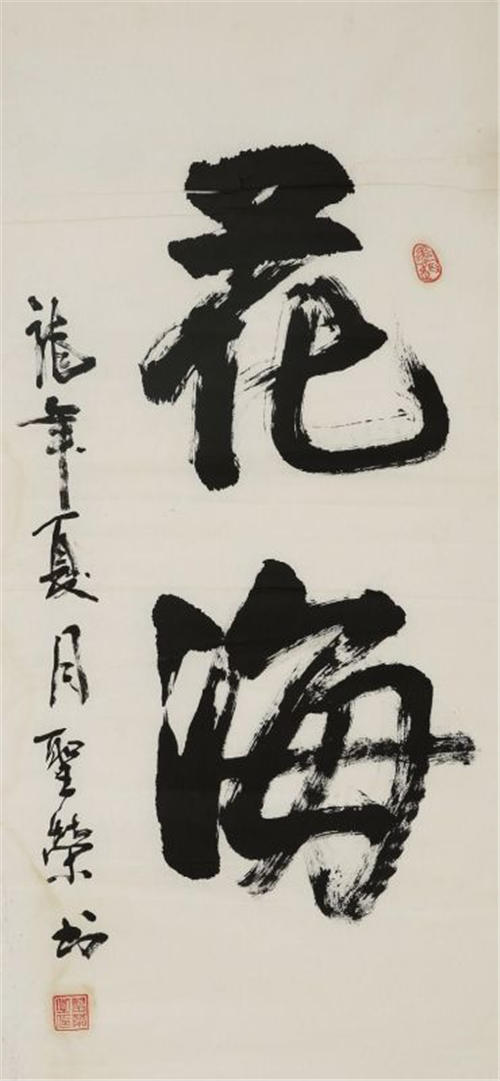 花海
龍年夏月聖榮书